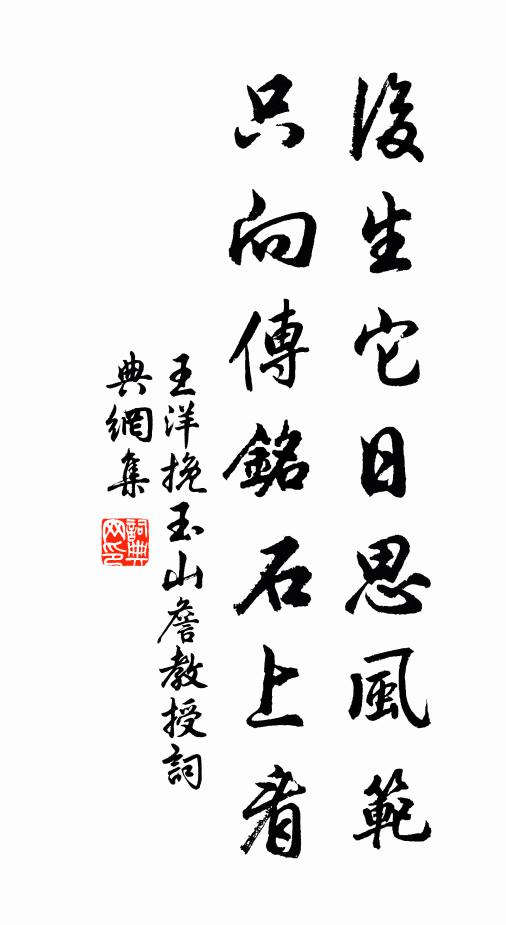 後生它日思風範
只向傳銘石上看
王洋挽玉山詹教授詞
典網集
詞典網印